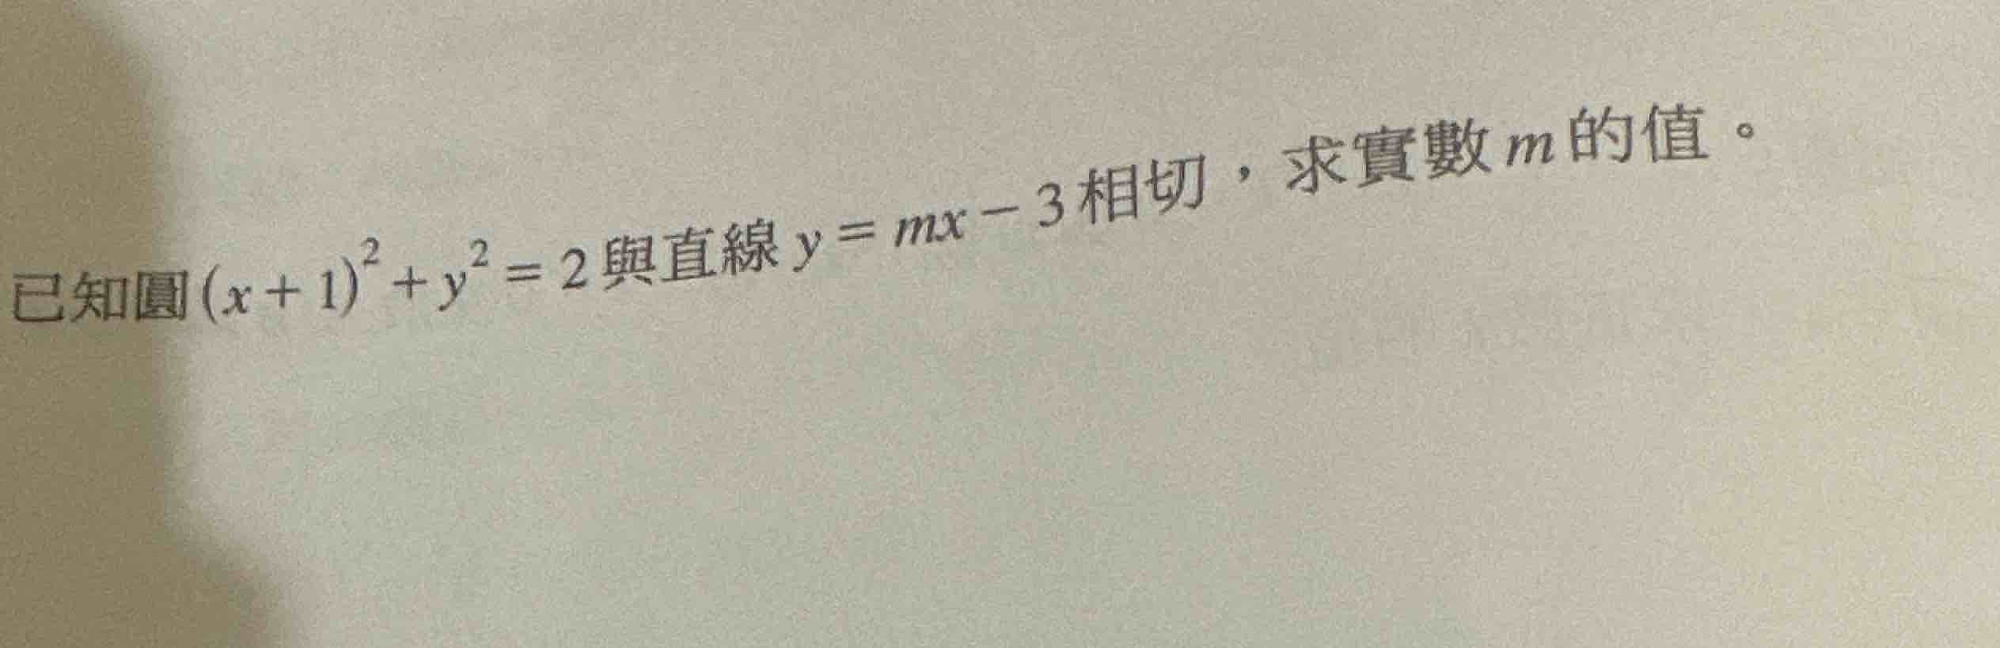 已知圓(x+1)²+y²=2與直線y=mx−3相切，求實數m的值。